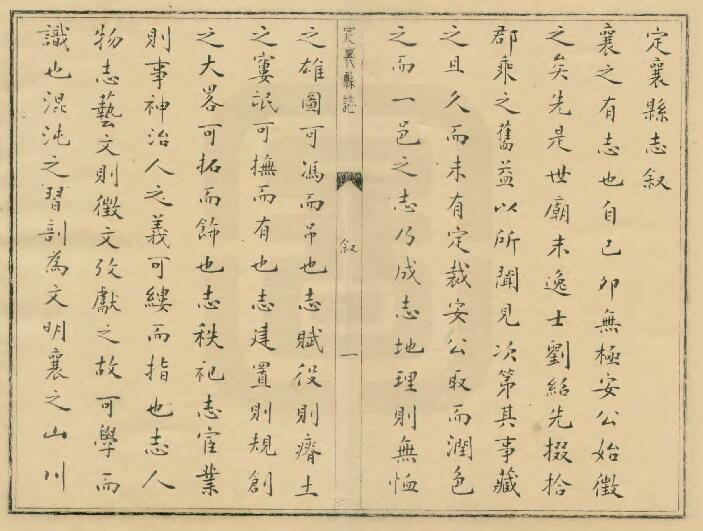 定襄縣志叙
襄之有志也自己卯無極安公始徵
之矣先是世廟末逸士劉紹先掇拾
郡乘之舊益以所聞見次第其事藏
之且久而未有定裁安公取而潤色
之而一邑之志乃成志地理則無恤
定襄縣誌
叙
一
之雄圖可馮而吊也志賦役則瘠土
之窶氓可撫而有也志建置則規創
之大畧可拓而飾也志秩祀志官業
則事神治人之義可縷而指也志人
物志藝文則徵文攷獻之故可學而
識也混沌之習剖為文明襄之山川